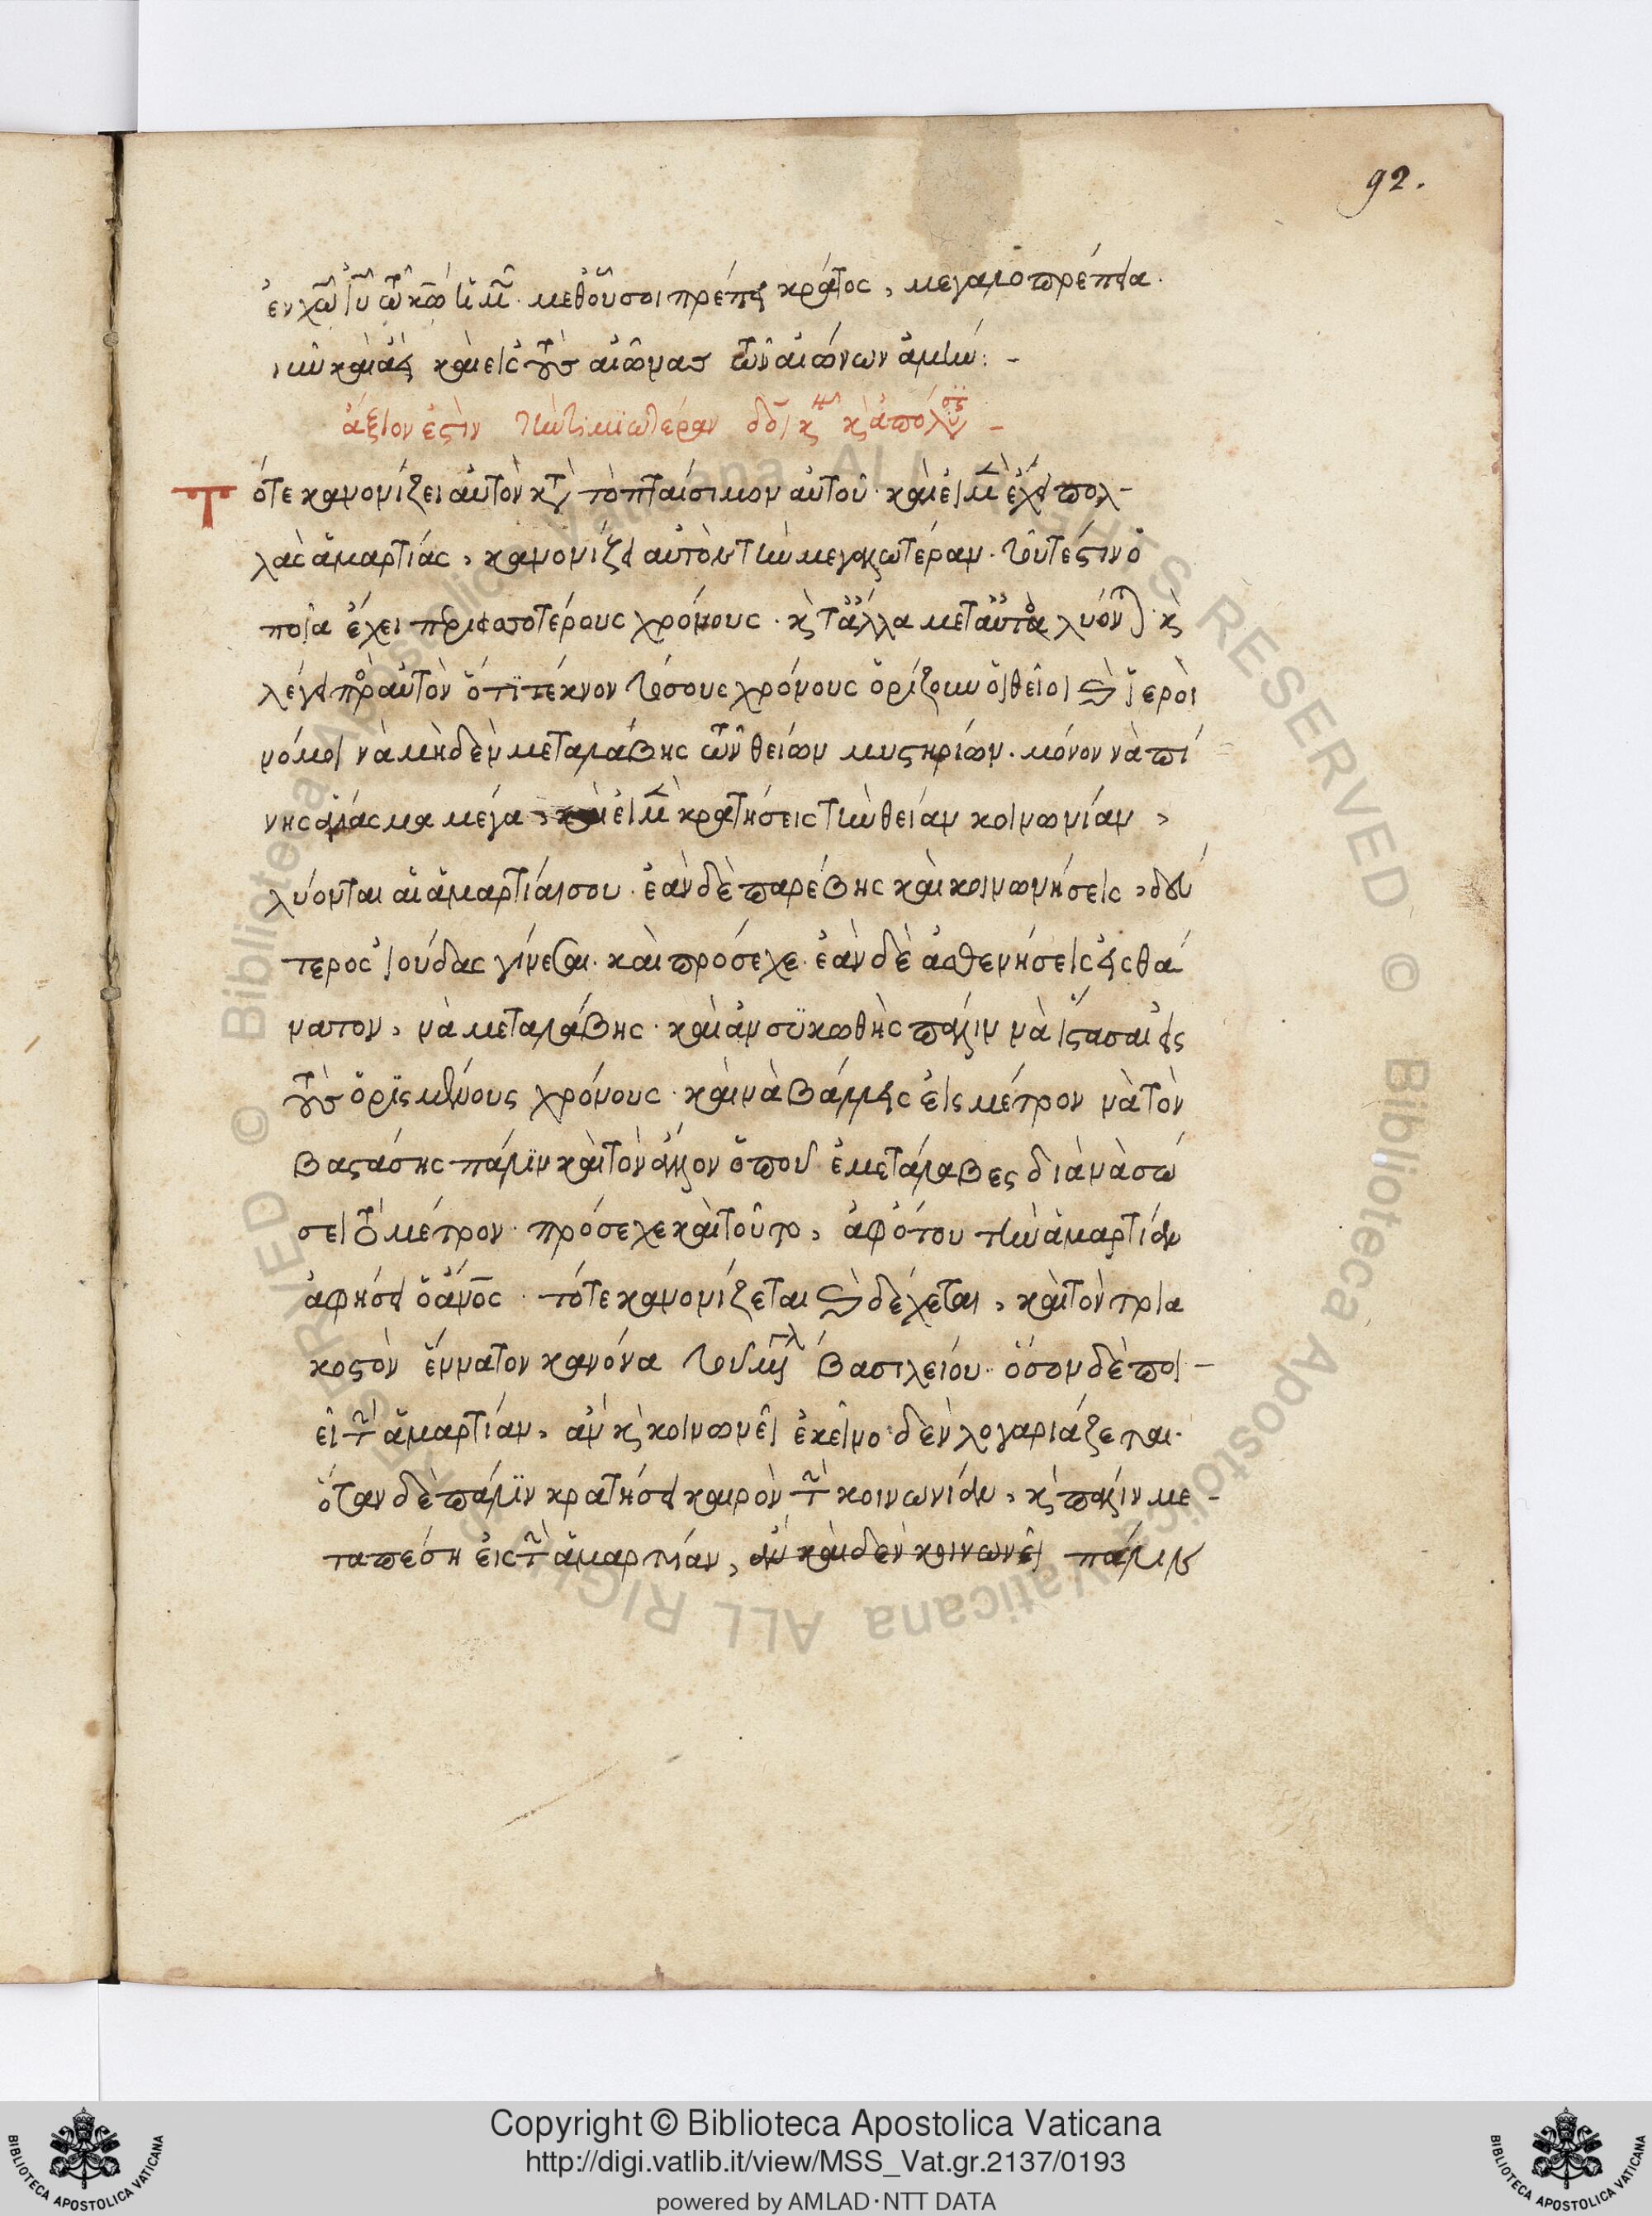 92.
ἐν χω ιυ τω κω ημ. μεθοὗ σοι πρέπει κράτος, μεγαλοπρέπεια.
νῦν καὶ ἀεὶ καὶ εἰς τοὺς αἰῶνας τῶν αἰώνων ἀμήν: -
ἄξιον ἐστὶν τὴν τιμιωτέραν δόξα κ νῦν κ ἀπόλυσις -
Τότε κανονίζει αὐτὸν κατὰ τὸ πταίσιμον αὐτοῦ. καὶ εἰ μὲν ἔχει πολ-
λὰς ἁμαρτίας, κανονίζει αὐτὸν τὴν μεγαλωτέραν. τοῦτέστιν ὁ
ποία ἔχει περισσοτέρους χρόνους. κ τἄλλα μεταὐτὰ λυόνται. κ
λέγει πρὸς αὐτὸν ὅτι τέκνον τόσους χρόνους ὁρίζουν οἱ θεῖοι καὶ ἱεροὶ
νόμοι νὰ μὴδὲν μεταλάβης τῶν θείων μυστηρίων. μόνον νὰ πί
νης ἁγίασμα μέγα, καὶ εἰ μὲν κρατήσεις τὴν θείαν κοινωνίαν,
λύονται αἱ ἁμαρτίαι σου. ἐὰν δὲ παρέβης καὶ κοινωνήσεις, δεύ
τερος ἰούδας γίνεσαι. καὶ πρόσεχε. ἐὰν δὲ ἀσθενήσεις εἰς θά
νατον, νὰ μεταλάβης. καὶ ἀν συκωθῆς πάλιν νὰ ἵστασαι εἰς
τοὺς ὁρισμένους χρόνους. καὶ νὰ βάλλεις εἰς μέτρον νὰ τὸν
βαστάσης πάλιν καὶ τὸν ἄλλον ὁποῦ ἐμετάλαβες διὰ νὰ σώ
σει τὸ μέτρον. πρόσεχε καὶ τοῦτο, ἀφότου τὴν ἁμαρτίαν
ἀφήσει ὁ ἄνος. τότε κανονίζεται καὶ δέχεται, καὶ τὸν τρια
κοστὸν ἔνματον κανόνα τοῦ μεγάλου βασιλείου. ὅσον δὲ ποι-
εῖ τὴν ἁμαρτίαν, ἀν κ κοινωνεῖ ἐκεῖνο δὲν λογαριάζεται.
ὅταν δὲ πάλιν κρατήσει καιρὸν τὴν κοινωνίαν, κ πάλιν με-
ταπέση εἰς τὴν ἁμαρτίαν, ἀν καὶ δὲν κοινωνεῖ πάλιν
Copyright © Biblioteca Apostolica Vaticana
http://digi.vatlib.it/view/MSS_Vat.gr.2137/0193
powered by AMLAD·NTT DATA